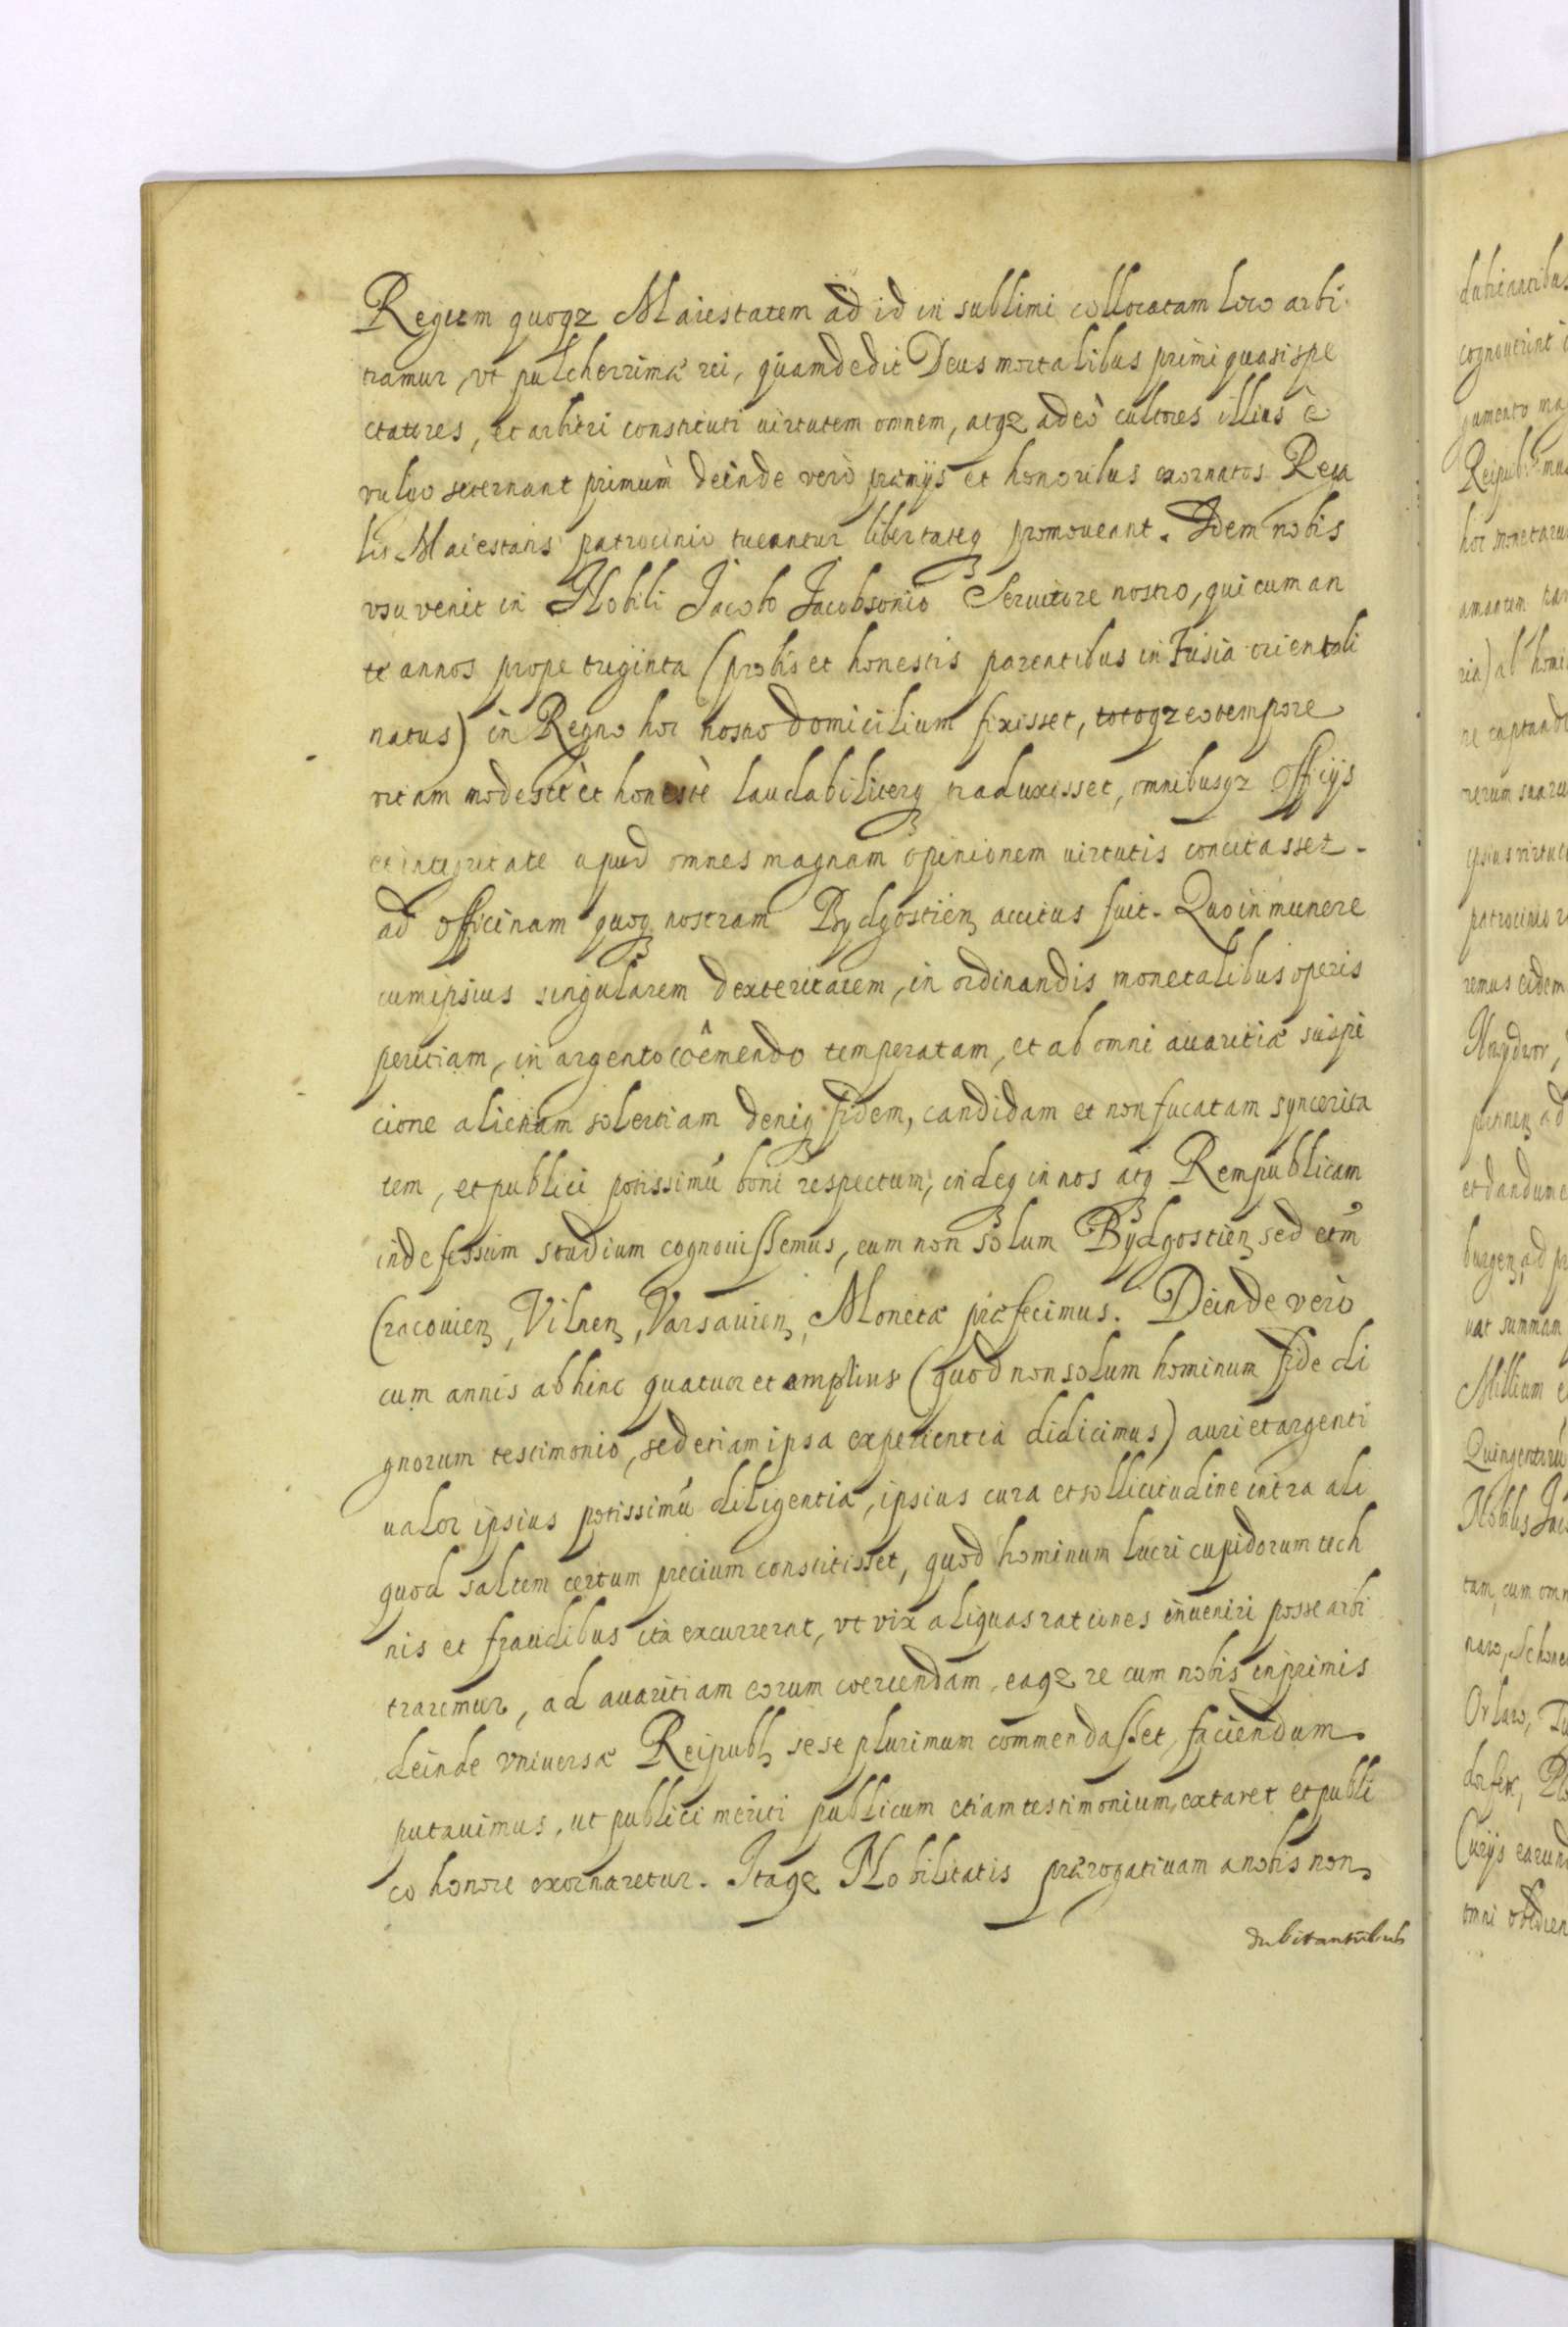 Regiam quoqz Maiestatem ad id in sublimi collocatam loco arbi
tramur, vt pulcherrimæ rei, quam dedit Deus mortalibus primi quasi spe
ctatores, et arbitri constituti uirtutem omnem, atqz adeò cultores illius è
vulgo secernant primum deinde verò præmijs et honoribus exornatos Rega
lis Maiestatis patrocinio tueantur libertateqz promoueant. Idem nobis
vsu venit in Nobili Jacobo Jacobsonio Seruitore nostro, qui cum an
te annos prope triginta (probis et honestis parentibus in Frisia orientali
natus) in Regno hoc nostro domicilium fixisset, totoqz eo tempore
vitam modestè et honestè laudabiliterqz traduxisset, omnibusqz officijs
et integritate apud omnes magnam opinionem uirtutis concitasset.
ad officinam quoqz nostram Bydgostien accitus fuit. Quo in munere
cum ipsius singularem dexteritatem, in ordinandis monetalibus operis
peritiam, in argento coêmendo temperatam, et ab omni auaritiæ suspi
cione alienam solertiam deniqz fidem, candidam et non fucatam syncerita
tem, et publici potissimũ boni respectum, indeqz in nos atqz Rempublicam
indefessum studium cognouissemus, eum non solum Bydgostien sed etm̃
Cracouien, Vilnen, Varsauien, Monetæ præfecimus. Deinde verò
cum annis abhinc quatuor et amplius (quod non solum hominum fide di
gnorum testimonio, sed etiam ipsa experientia didicimus) auri et argenti
ualor ipsius potissimũ diligentia, ipsius cura et sollicitudine intra ali
quod saltem certum precium constitisset, quod hominum lucri cupidorum tech
nis et fraudibus ità excurrerat, vt vix aliquas rationes inueniri posse arbi
traremur, ad auaritiam eorum coercendam, eaqz re cum nobis inprimis
deinde vniuersæ Reipubl sese plurimum commendasset, faciendum
putauimus, ut publici meriti publicum etiam testimonium, extaret et publi
co honore exornaretur. Itaqz Nobilitatis prærogatiuam a nobis non
dubitantibus